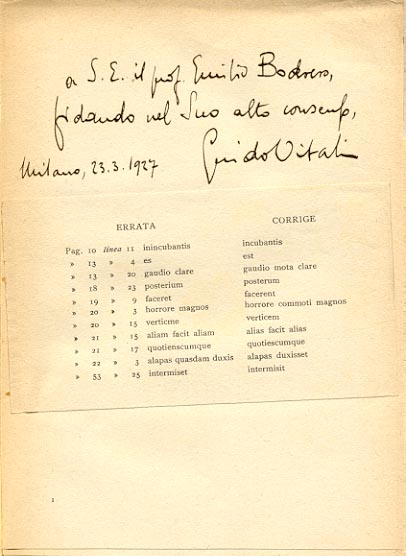 a S. E. il prof. Emilio Bodrero,
fidando nel Suo alto consenso,
Milano, 23.3.1927 Guido Vitali
ERRATA CORRIGE
Pag. 10 linea 11 inincubantis incubantis
» 13 » 4 es est
» 13 » 20 gaudio clare gaudio mota clare
» 18 » 23 posterium posterum
» 19 » 9 faceret facerent
» 20 » 3 horrore magnos horrore commoti magnos
» 20 » 15 verticme verticem
» 21 » 15 aliam facit aliam alias facit alias
» 21 » 17 quotienscumque quotiescumque
» 22 » 3 alapas quasdam duxis alapas duxisset
» 53 » 25 intermiset intermisit